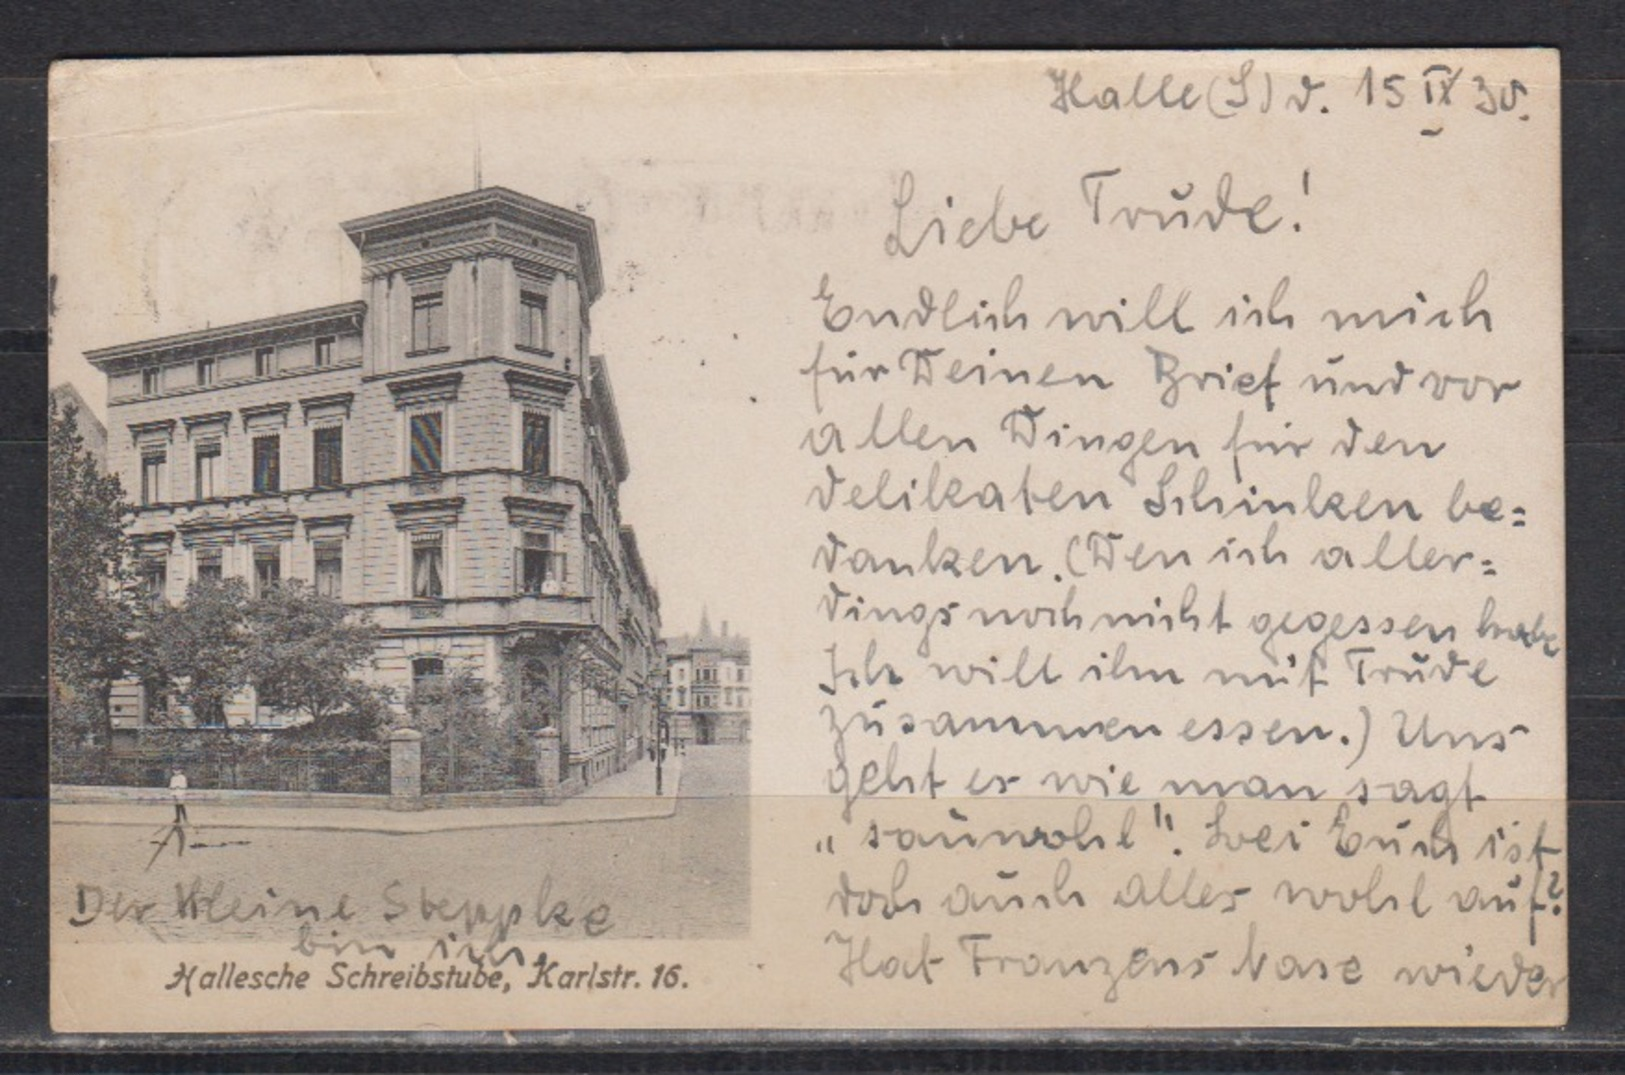 Halle (S) d. 15 IX 30.
Liebe Trude!
Endlich will ich mich
für Deinen Brief und vor
allen Dingen für den
delikaten Schinken be=
danken. (Den ich aller=
dings noch nicht gegessen habe
Ich will ihn mit Trude
zusammen essen.) Uns
geht es wie man sagt
„sauwohl". bei Euch ist
doch auch alles wohl auf?
Hat Franzens Nase wieder
Der Kleine Steppke
bin ich.
Hallesche Schreibstube, Karlstr. 16.